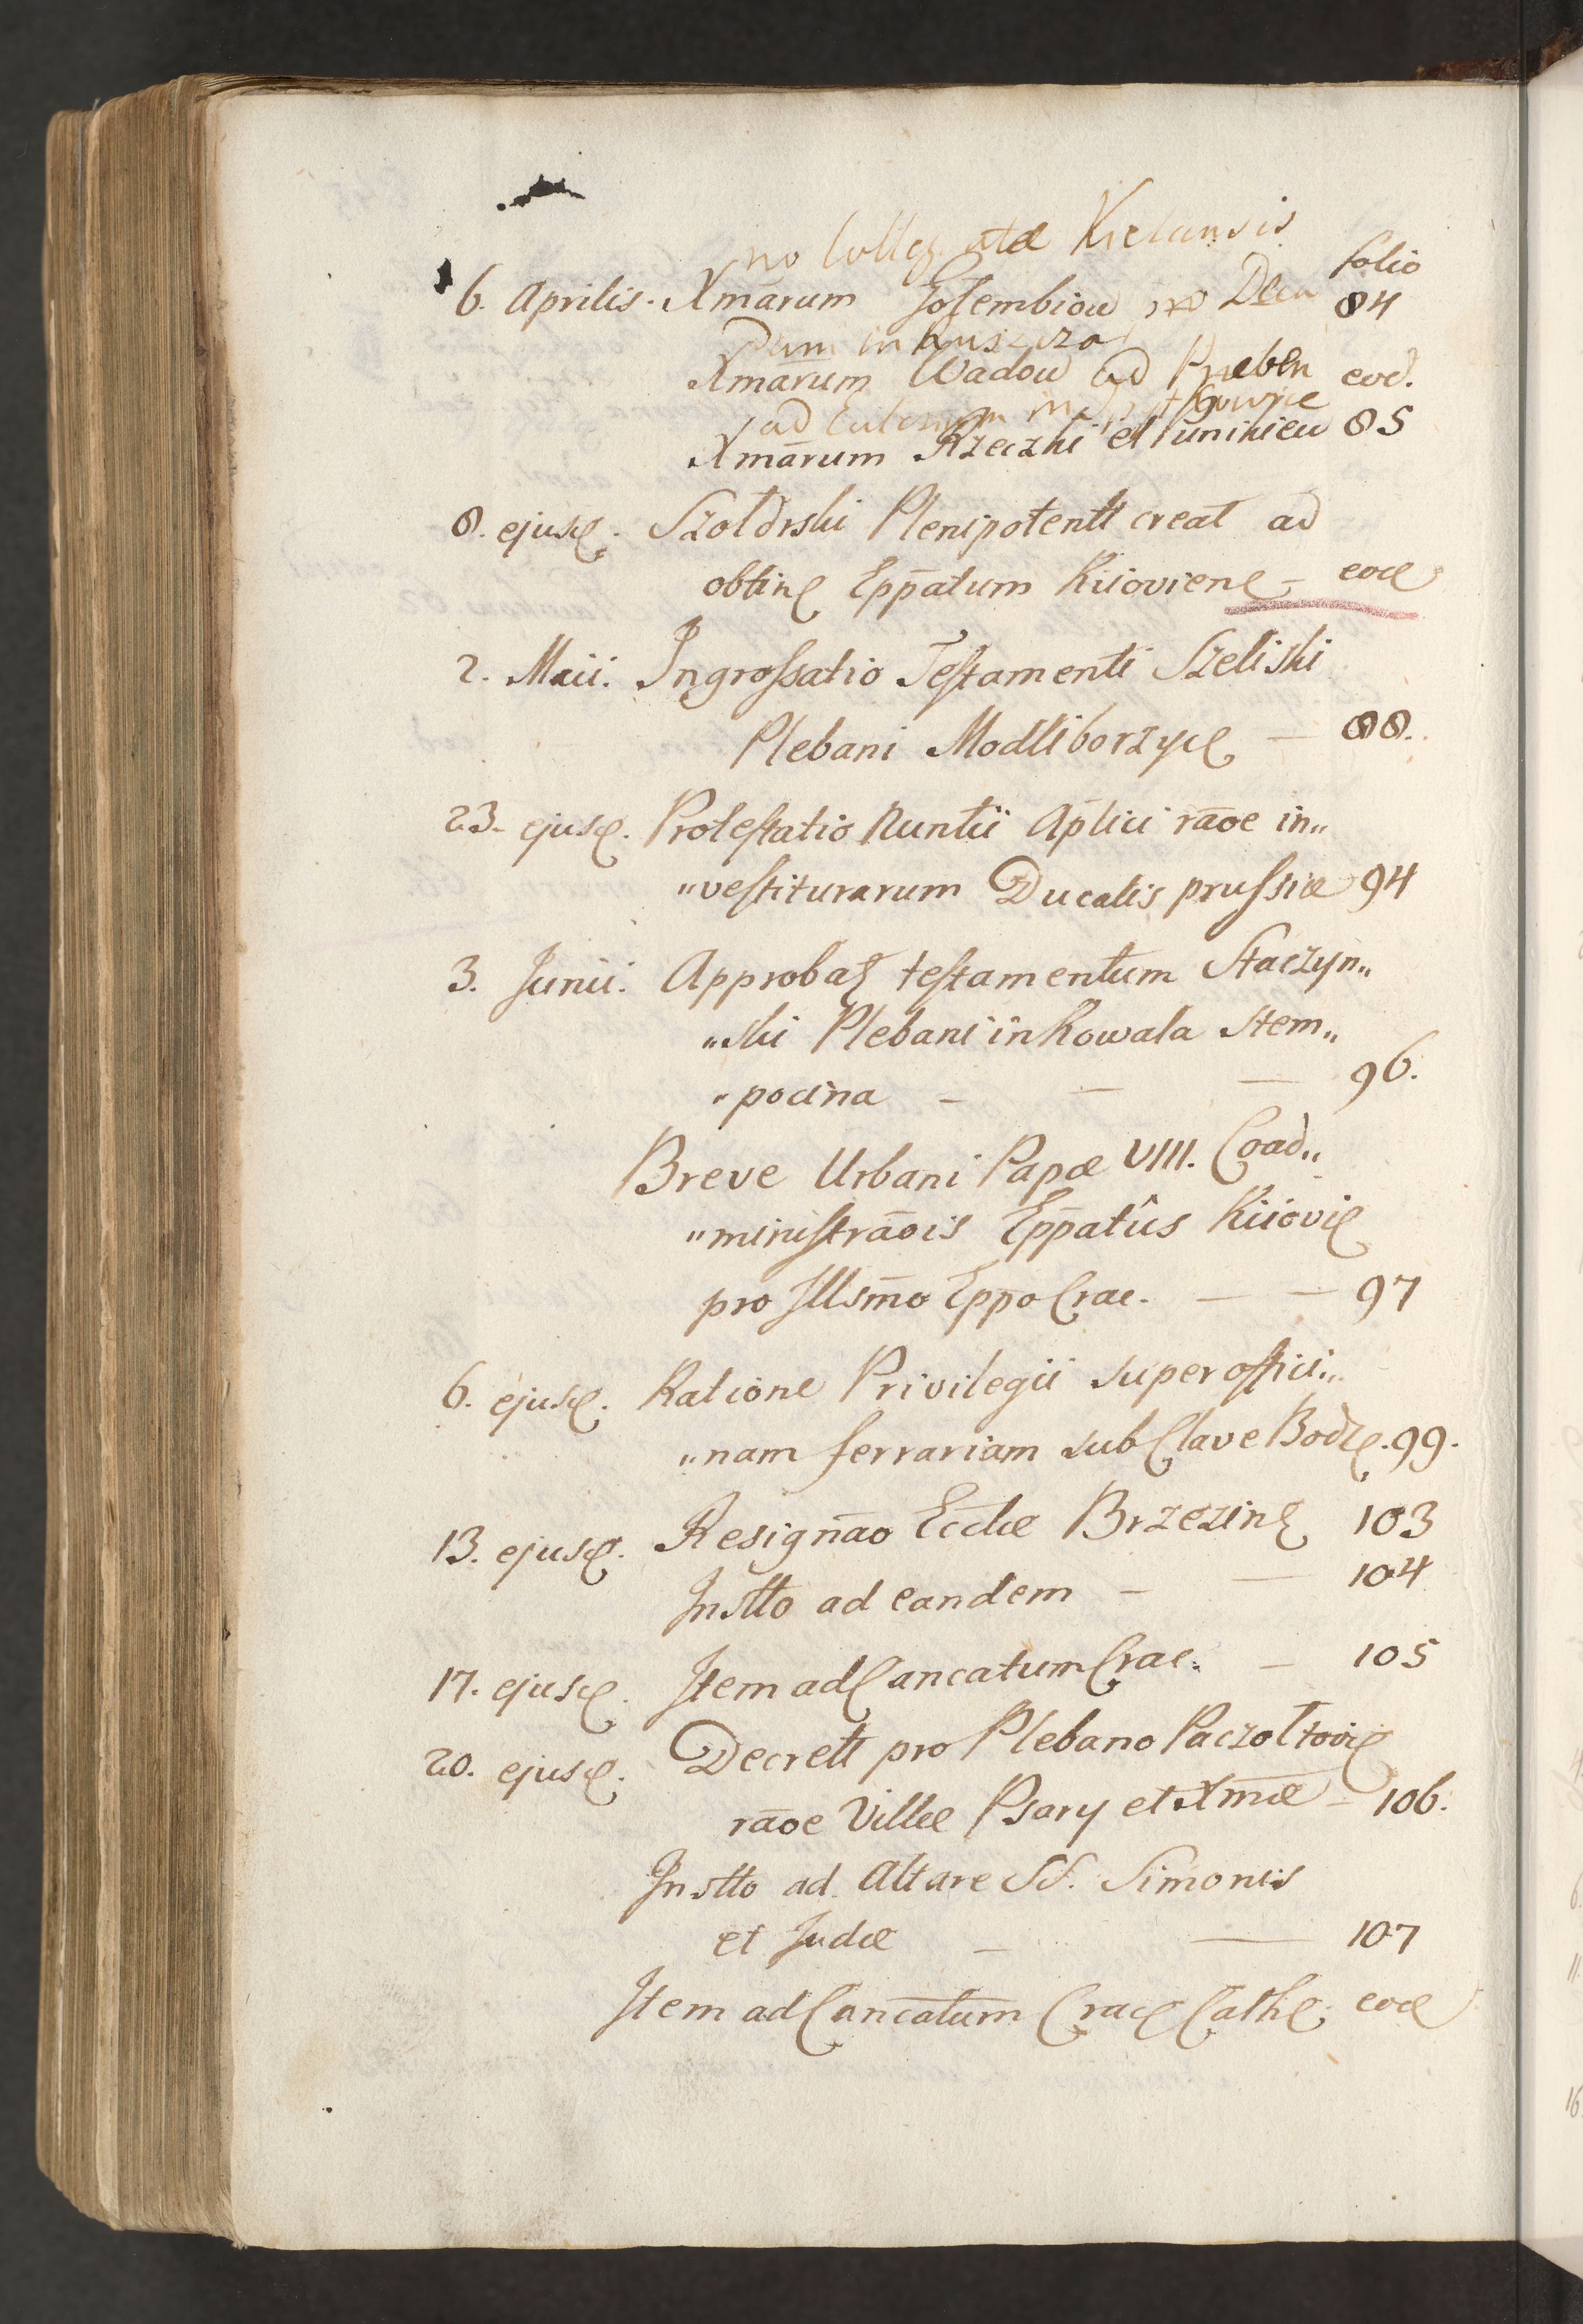 no Collegiatæ Kielcensis
folio
6. Aprilis. Xmārum Gołembiow pro Deca 84
num in Ruszcza
Xmārum Wadow ad Præben eod.
ad Eccles in
Xmārum Rzeczki et Łuninieu 85
8. ejusd. Szołdrski Plenipotentt creat ad
obtind Epp̄atum Kiioviens – eod
2. Maii. Ingrossatio Testamenti Szeliski
Plebani Modliborzyc — 88.
23. ejusd. Protestatio Nuntii Ap̄lici rāoe in„
„vestiturarum Ducalis prussiæ 94
3. Junii. Approbat testamentum Staczyn„
„ski Plebani in Kowala Stem„
„pocina – — — 96.
Breve Urbani Papæ VIII. Coad„
„ministrāois Epp̄atûs Kiiovi
pro Illsm̄o Epp̄o Crac. — — 97
6. ejusd. Ratione Privilegii super offici„
„nam ferrariam sub Clave Bodz. 99.
13. ejusd. Resignāo Eccliæ Brzezin 103
Instto ad eandem – — 104
17. ejusd. Item ad Cancatum Crac. – 105
20. ejusd. Decrett pro Plebano Paczołtovi
rāoe Villæ Psary et Xmæ – 106.
Instto ad Altare SS. Simonis
et Judæ – — 107
Item ad Cancatum Crac Cath. eod